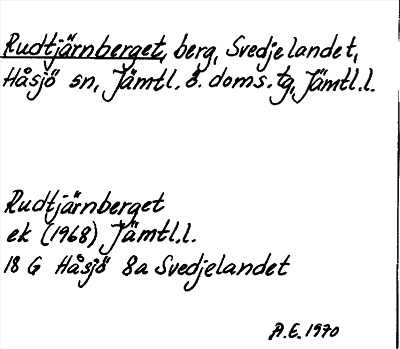 Rudtjärnberget, berg, Svedjelandet,
Håsjö sn, Jämtl. ö. doms. tg, Jämtl.l.
Rudtjärnberget
ek (1968) Jämtl.l.
18 G Håsjö 8a Svedjelandet
A.E. 1970